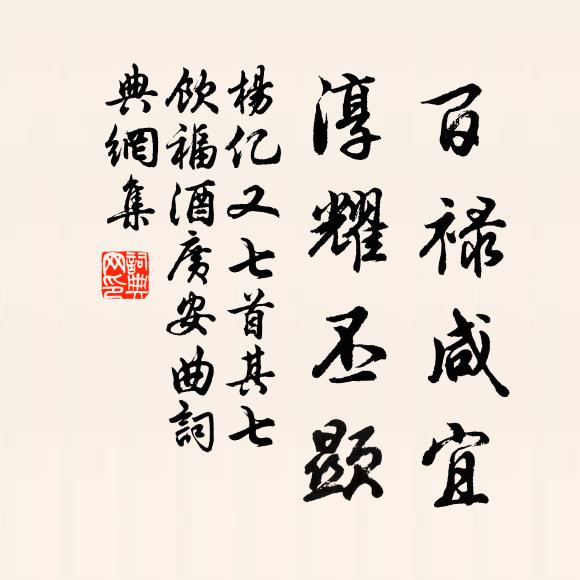 百禄咸宜
淳耀丕顯
楊亿又七首其七
飲福酒廣安曲詞
典網集
詞典網印